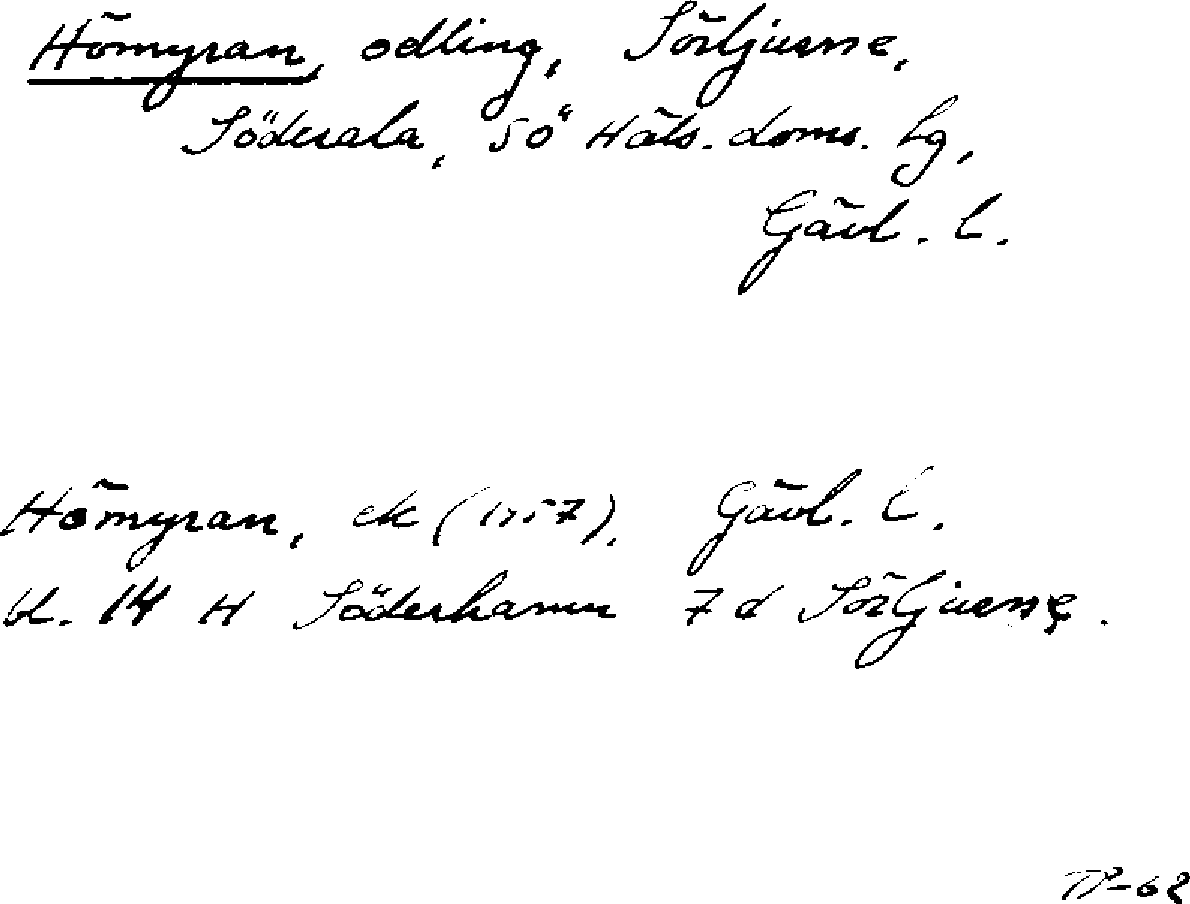 Hömyran, odling, Sörljusne,
Söderala, Sö Häls. doms. hg,
Gävl. l.
Hömyran, ek (1957). Gävl. l.
bl. 14 H Söderhamn 7 d Sörljusne.
TP-62